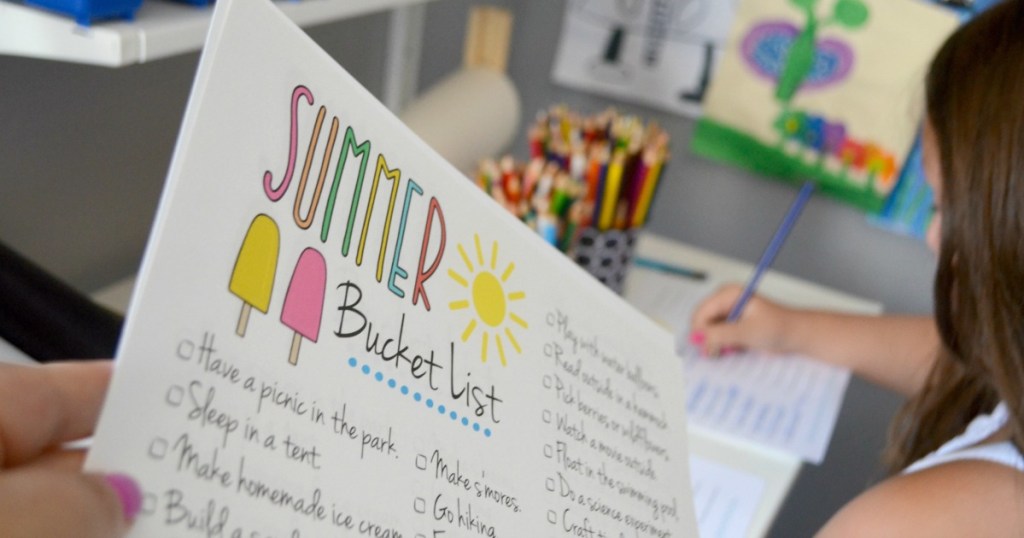 SUMMER
Bucket List
Have a picnic in the park.
Sleep in a tent.
Make homemade ice cream
Build a
Make s'mores.
Go hiking
Play with water balloons.
Read outside in a hammock
Pick berries or wildflowers
Watch a movie outside
Float in the swimming pool.
Do a science experiment
Craft